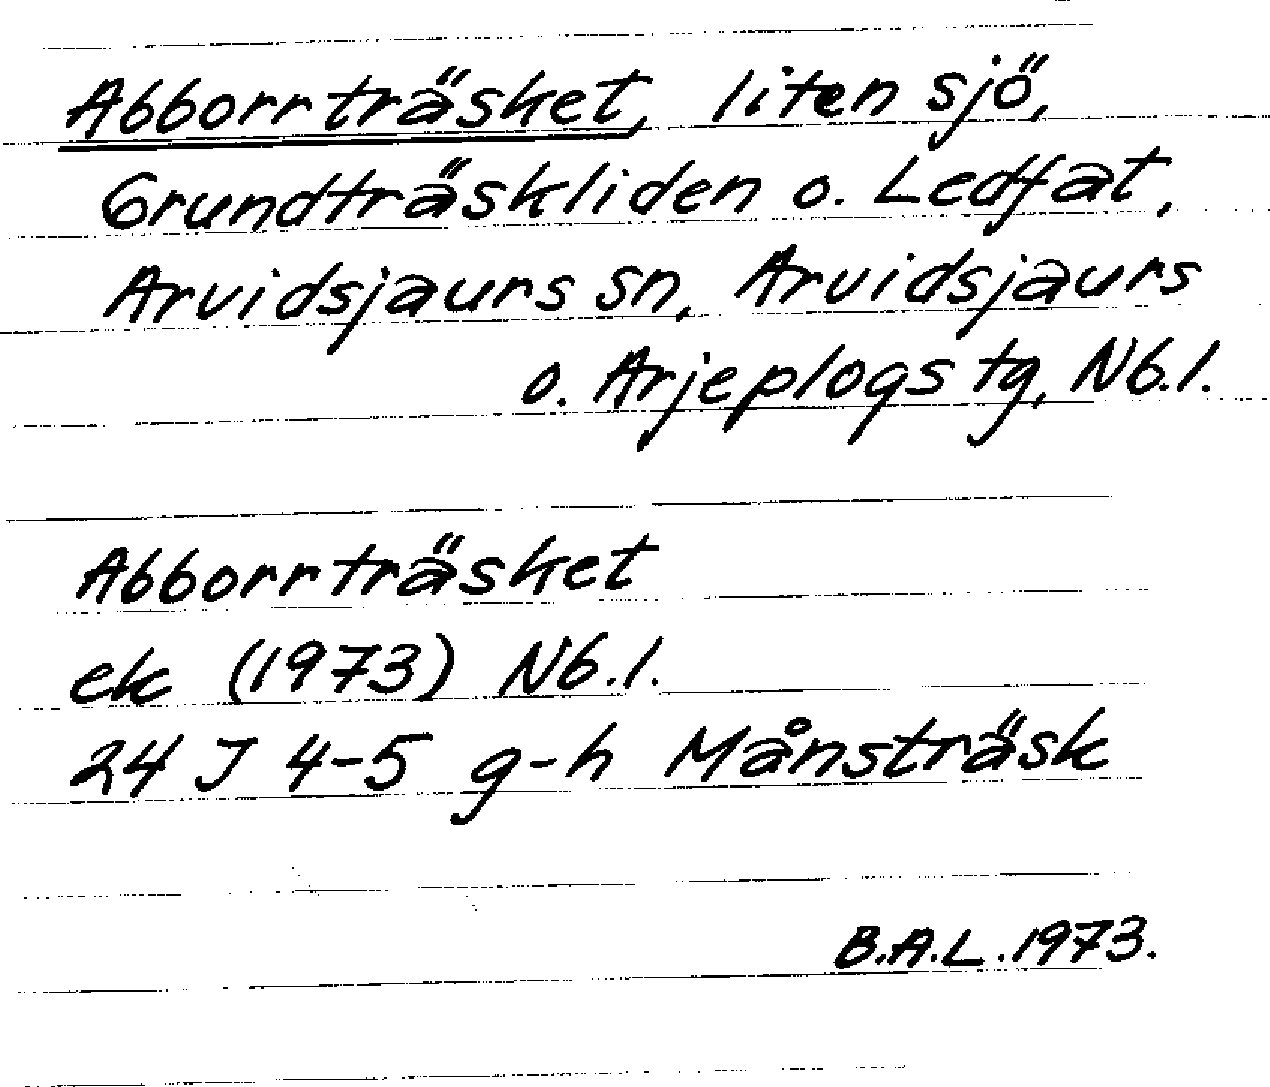 Abborrträsket, liten sjö,
Grundträskliden o. Ledfat,
Arvidsjaurs sn, Arvidsjaurs
o. Arjeplogs tg, Nb.l.
Abborrträsket
ek (1973) Nb.l.
24 J 4-5 g-h Månsträsk
B.A.L. 1973.